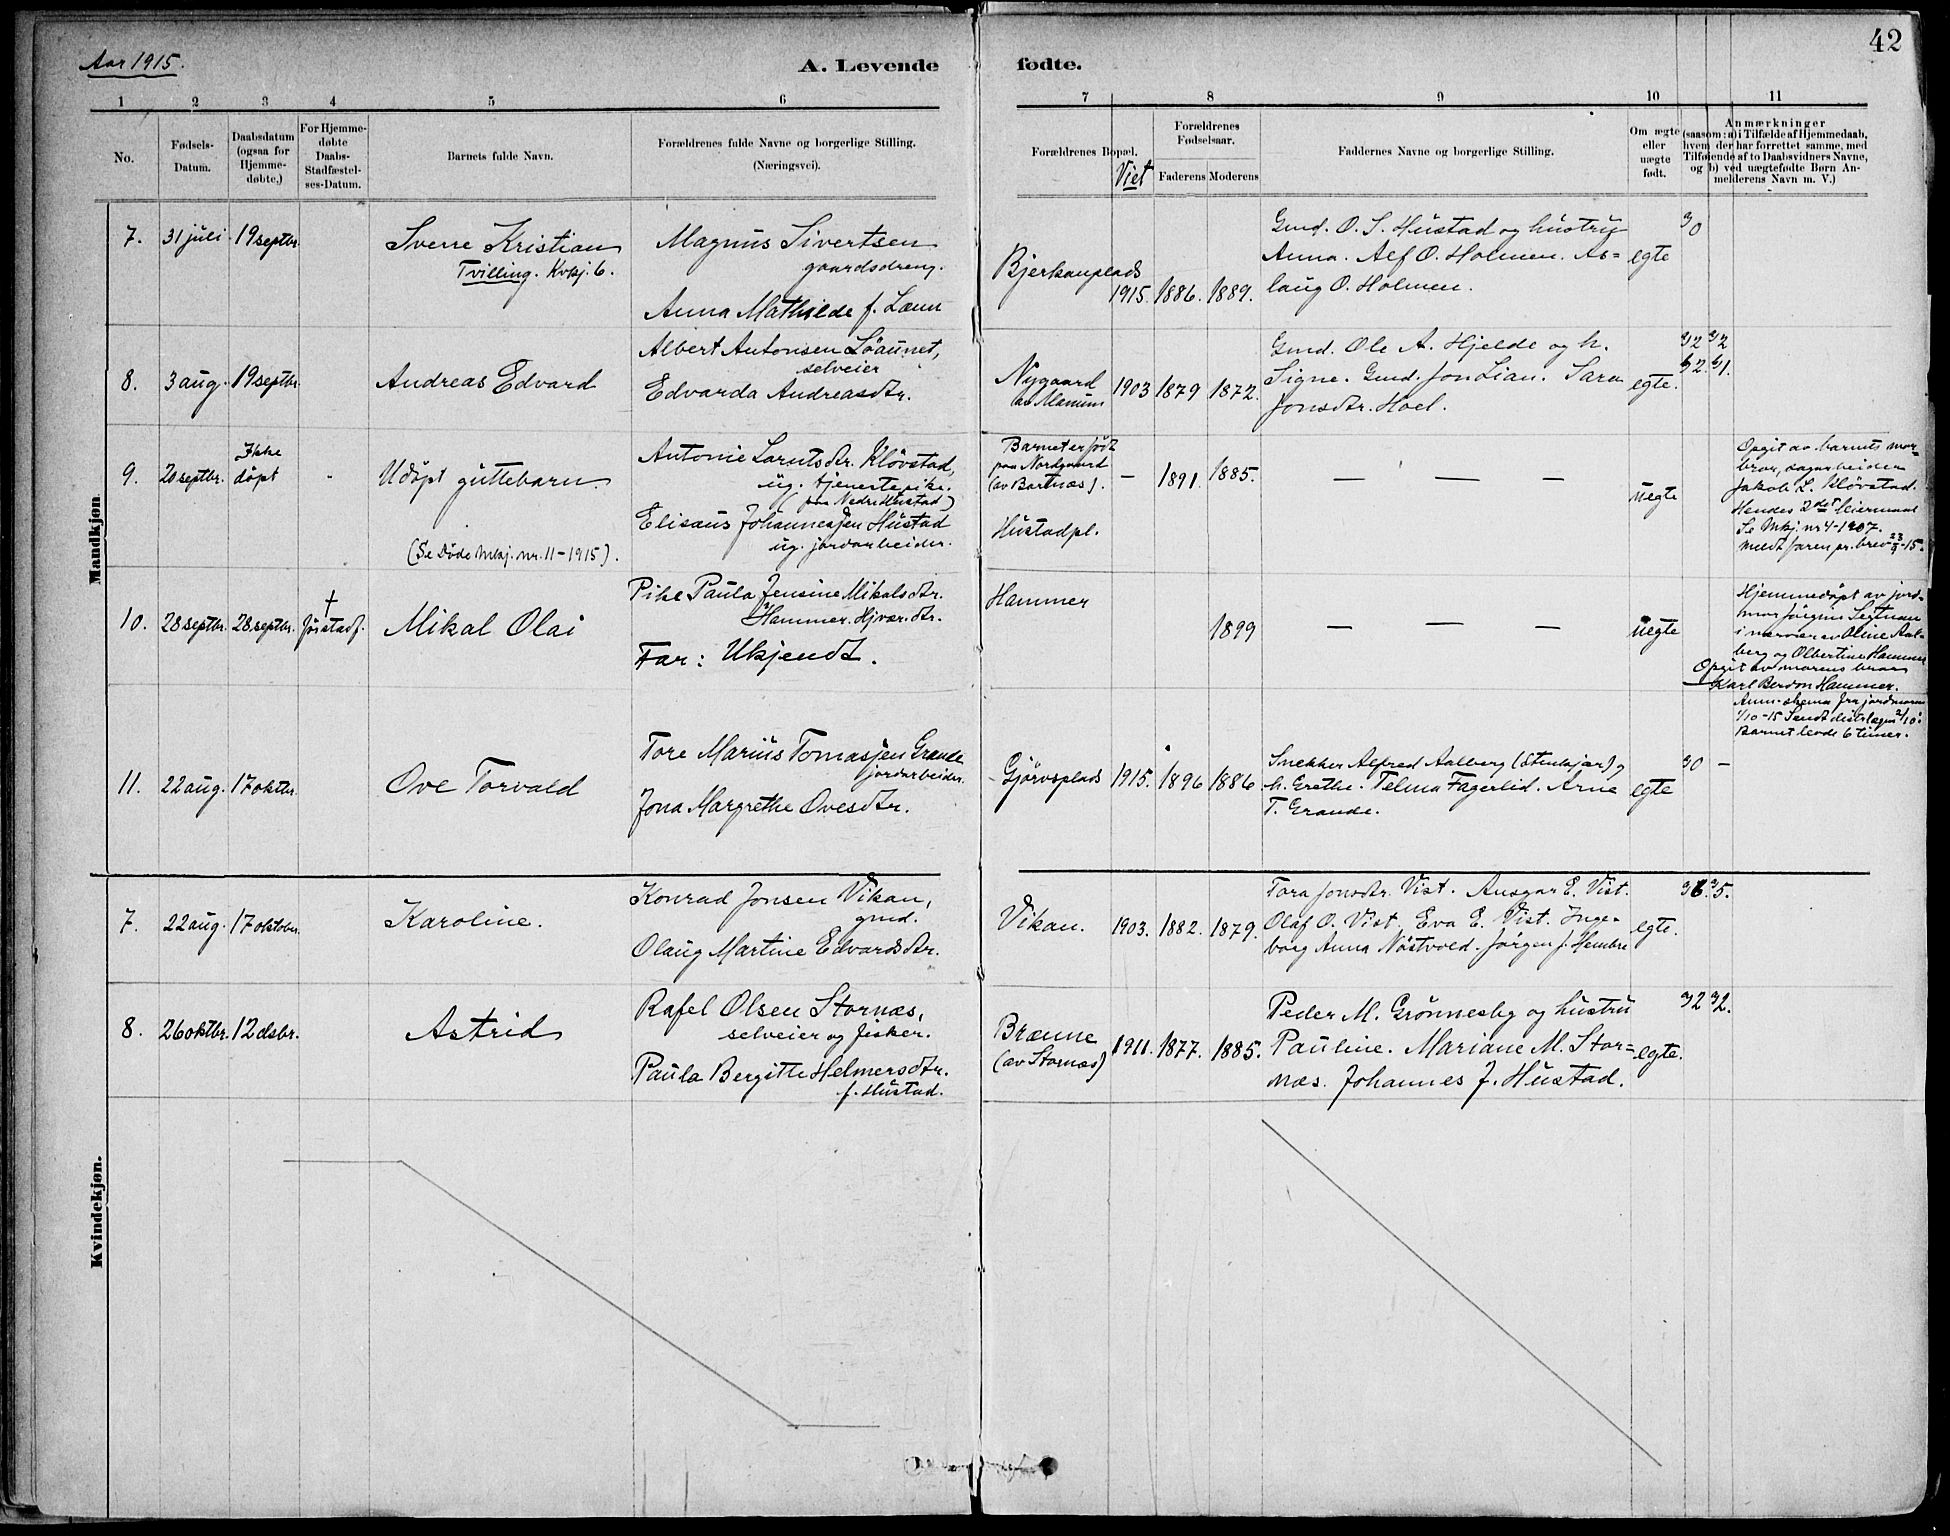 Aar 1915.
A. Levende fødte.
42
1 2 3 4 5 6 7 8 9 10 11
No.
Fødsels-Datum.
Daabsdatum (ogsaa for Hjemme-døbte,)
For Hjemme-døbte Daabs-Stadfæstel-ses-Datum.
Barnets fulde Navn.
Forældrenes fulde Navne og borgerlige Stilling.
(Næringsvei).
Forældrenes Bopæl.
Viet
Forældrenes Fødselsaar.
Faderens Moderens
Faddernes Navne og borgerlige Stilling.
Om ægte eller uægte født.
Anmærkninger
(saasom: a) i Tilfælde af Hjemmedaab,
hvem der har forrettet samme, med
Tilføiende af to Daabsvidners Navne,
og b) ved uægtefødte Børn An-
melderens Navn m. V.)
Mandkjøn
7. 31 juli 19 septbr.
Sverre Kristian
Tvilling. Kvkj. 6.
Magnus Sivertsen
gaardsdreng.
Anna Mathilde f.
Bjerkanplads
1915. 1886. 1889.
Gmd. O. S. Hustad og hustru
Anna. Alf O. Holmen. As=
laug O. Holmen.
egte
3/0
8. 3 aug. 19 septbr.
Andreas Edvard
Albert Antonsen Löaunet,
selveier
Edvarda Andreasdtr.
Nygaard
av Manum
1903 1879 1872.
Gmd. Ole A. Hjelde og h.
Signe. Gmd. Jon Lian. Sara
Jonsdtr. Hoel.
egte.
3/2 3/2
9. 20 septbr. Ikke døpt -
Udöpt guttebarn
(Se Døde Mkj. nr. 11-1915).
Antonie Larntsdtr. Klövstad,
ug. tjenestepike.
(paa Nedre Hustad)
Elisæus Johannessen Hustad
ug. jordarbeider.
Barnet er født
paa Nordgaard
(av Bartnæs).
Hustadpl.
- 1891. 1885.
— — —
uegte
Opgit av barnets mor-
bror, sagarbeider
Jakob L. Klövstad.
Hendes 2det leiermaal
Se Mkj. nr 4-1907.
Meldt faren pr. brev 23/9-15.
10. 28 septbr. 28 septbr. †
Mikal Olai
Pike Paula Jensine Mikalsdtr.
Hammer. Hjvær. dtr.
Far: Ukjendt.
Hammer
1899
— — —
uegte
Hjemmedøpt av jord-
mor Jörgine Segtnan
i nærvær av Oline Aal-
berg og Olbertine Hammer
Opgit av morens bror
Karl Berdon Hammer.
Anm. skema fra jordmoren
1/10-15 Sendt distrlægen 2/10.
Barnet levde 6 timer.
11. 22 aug. 17 oktbr.
Ove Torvald
Tore Marius Tomassen Grande
jordarbeider.
Jona Margrethe Ovesdtr.
Gjörvsplads 1915. 1896 1886
Snekker Alfred Aalberg (Stenkjær) og
h. Grethe. Telma Fagerlid. Arne
T. Grande.
egte
3/0 -
Kvindekjøn.
7. 22 aug. 17 oktobr.
Karoline.
Konrad Jonsen Vikan,
gmd.
Olaug Martine Edvardsdtr.
Vikan. 1903. 1882. 1879.
Tora Jonsdtr. Vist. Ansgar E. Vist.
Olaf O. Vist. Eva E. Vist. Inge-
borg Anna Nöstvold. Jörgen J. Hembre
egte.
3/5.
8. 26 oktbr. 12 desbr.
Astrid
Rafel Olsen Stornæs,
selveier og fisker.
Paula Bergitte Helmersdtr.
f. Hustad.
Brænne
(av Stornæs)
1911. 1877. 1885.
Peder M. Grönnesby og hustru
Pauline. Mariane M. Stor=
næs. Johannes J. Hustad.
egte.
3/2 3/2.